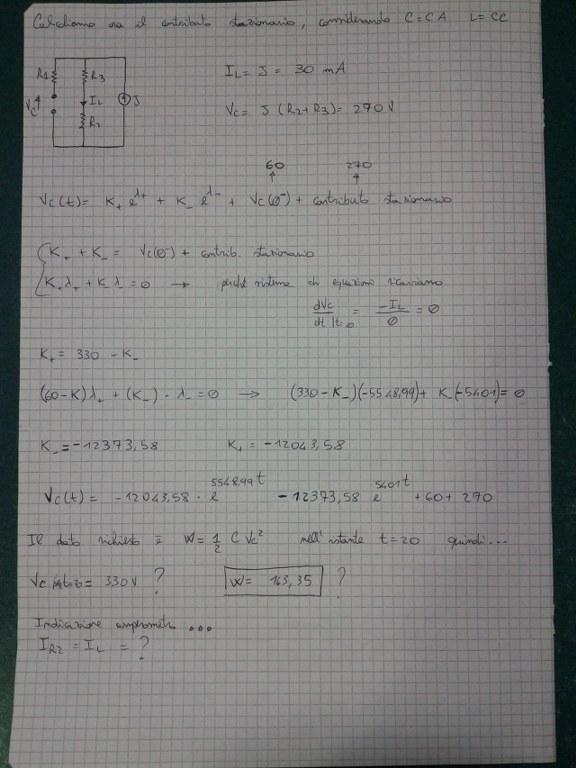 Calcoliamo ora il contributo stazionario, considerando C=CA L=CC
R1 R3 IL J
VC R2
IL = J = 30 mA
VC = J (R2+R3) = 270 V
60 270
VC(t) = K+ e^λ+ + K- e^λ- + VC(0-) + contributo stazionario
K+ + K- = VC(0-) + contrib. stazionario
K+ λ+ + K- λ- = 0 → perché sistema di equazioni ricaviamo
dVC/dt |t=0 = -IL/0 = 0
K+ = 330 - K-
(60-K) λ+ + (K-) · λ- = 0 → (330-K-)(-5548,99) + K-(-5401) = 0
K- = -12373,58 K+ = -12043,58
VC(t) = -12043,58 · e^5548.99 t -12373,58 e^5401 t +60+ 270
Il dato richiesto è W = 1/2 C VC² nell'istante t=20 quindi...
VC = 330 V ? W = 163,35 ?
Indicazione amperometro ...
IR2 = IL = ?